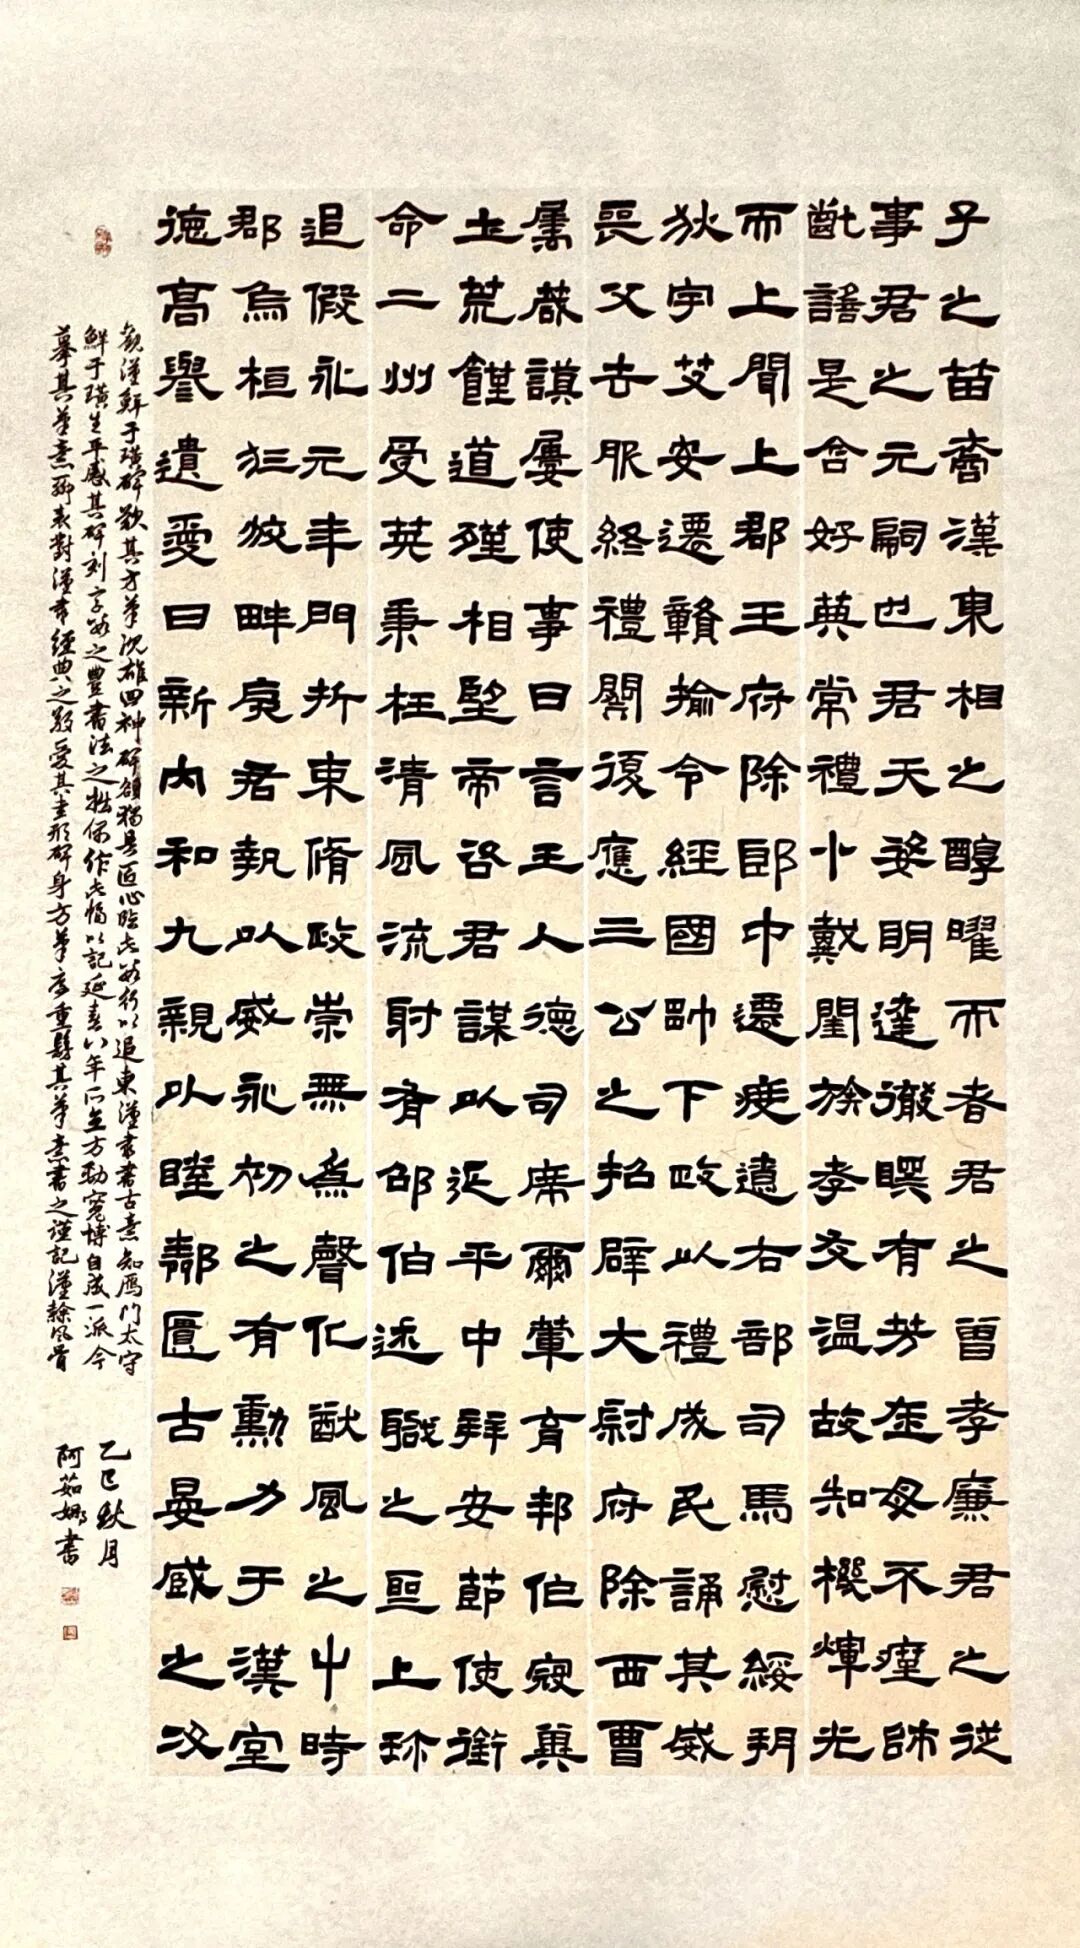 子之苗裔漢東相之醇曜而者君之曾孝廉君之從
事君之元嗣也君天姿明達徹瞑有芳不師
齔謡是含好典常禮十戴閨族孝友温故知機煇光
而上聞上郡王府除郎中遷度遼右部司馬慰綏朔
狄字艾安遷贛揄令經國帥下政以禮成民誦其威
喪父去服終禮闋復應三公之招辟大尉府除西曹
屬葴謨屢使事日言王人德司席爾輦育邦伫寇冀
土荒饉道殣相望帝咨君謀以延平中拜安節使銜
命二州受莢秉枉清風流射有邵伯述職之亟上珎
追假永元年門折束脩政崇無爲聲化猷風之中時
郡烏桓狂狡畔戾君執以威永初之有勳力于漢室
德高譽遺愛日新内和九親以睦鄰匱古晏感之没
觀漢鮮于璜碑歎其方筆沉雄四神碑額獨具匠心臨此數行以追東漢隸書古意知雁門太守
鮮于璜生平感其碑刻字數之豐書法之拙保作此幅以記延熹八年所立方勁寬博自成一派今
摹其筆意聊表對漢隸經典之敬愛其圭形碑身方筆厚重其筆意書之謹記漢隸風骨
乙巳秋月
阿茹娜書